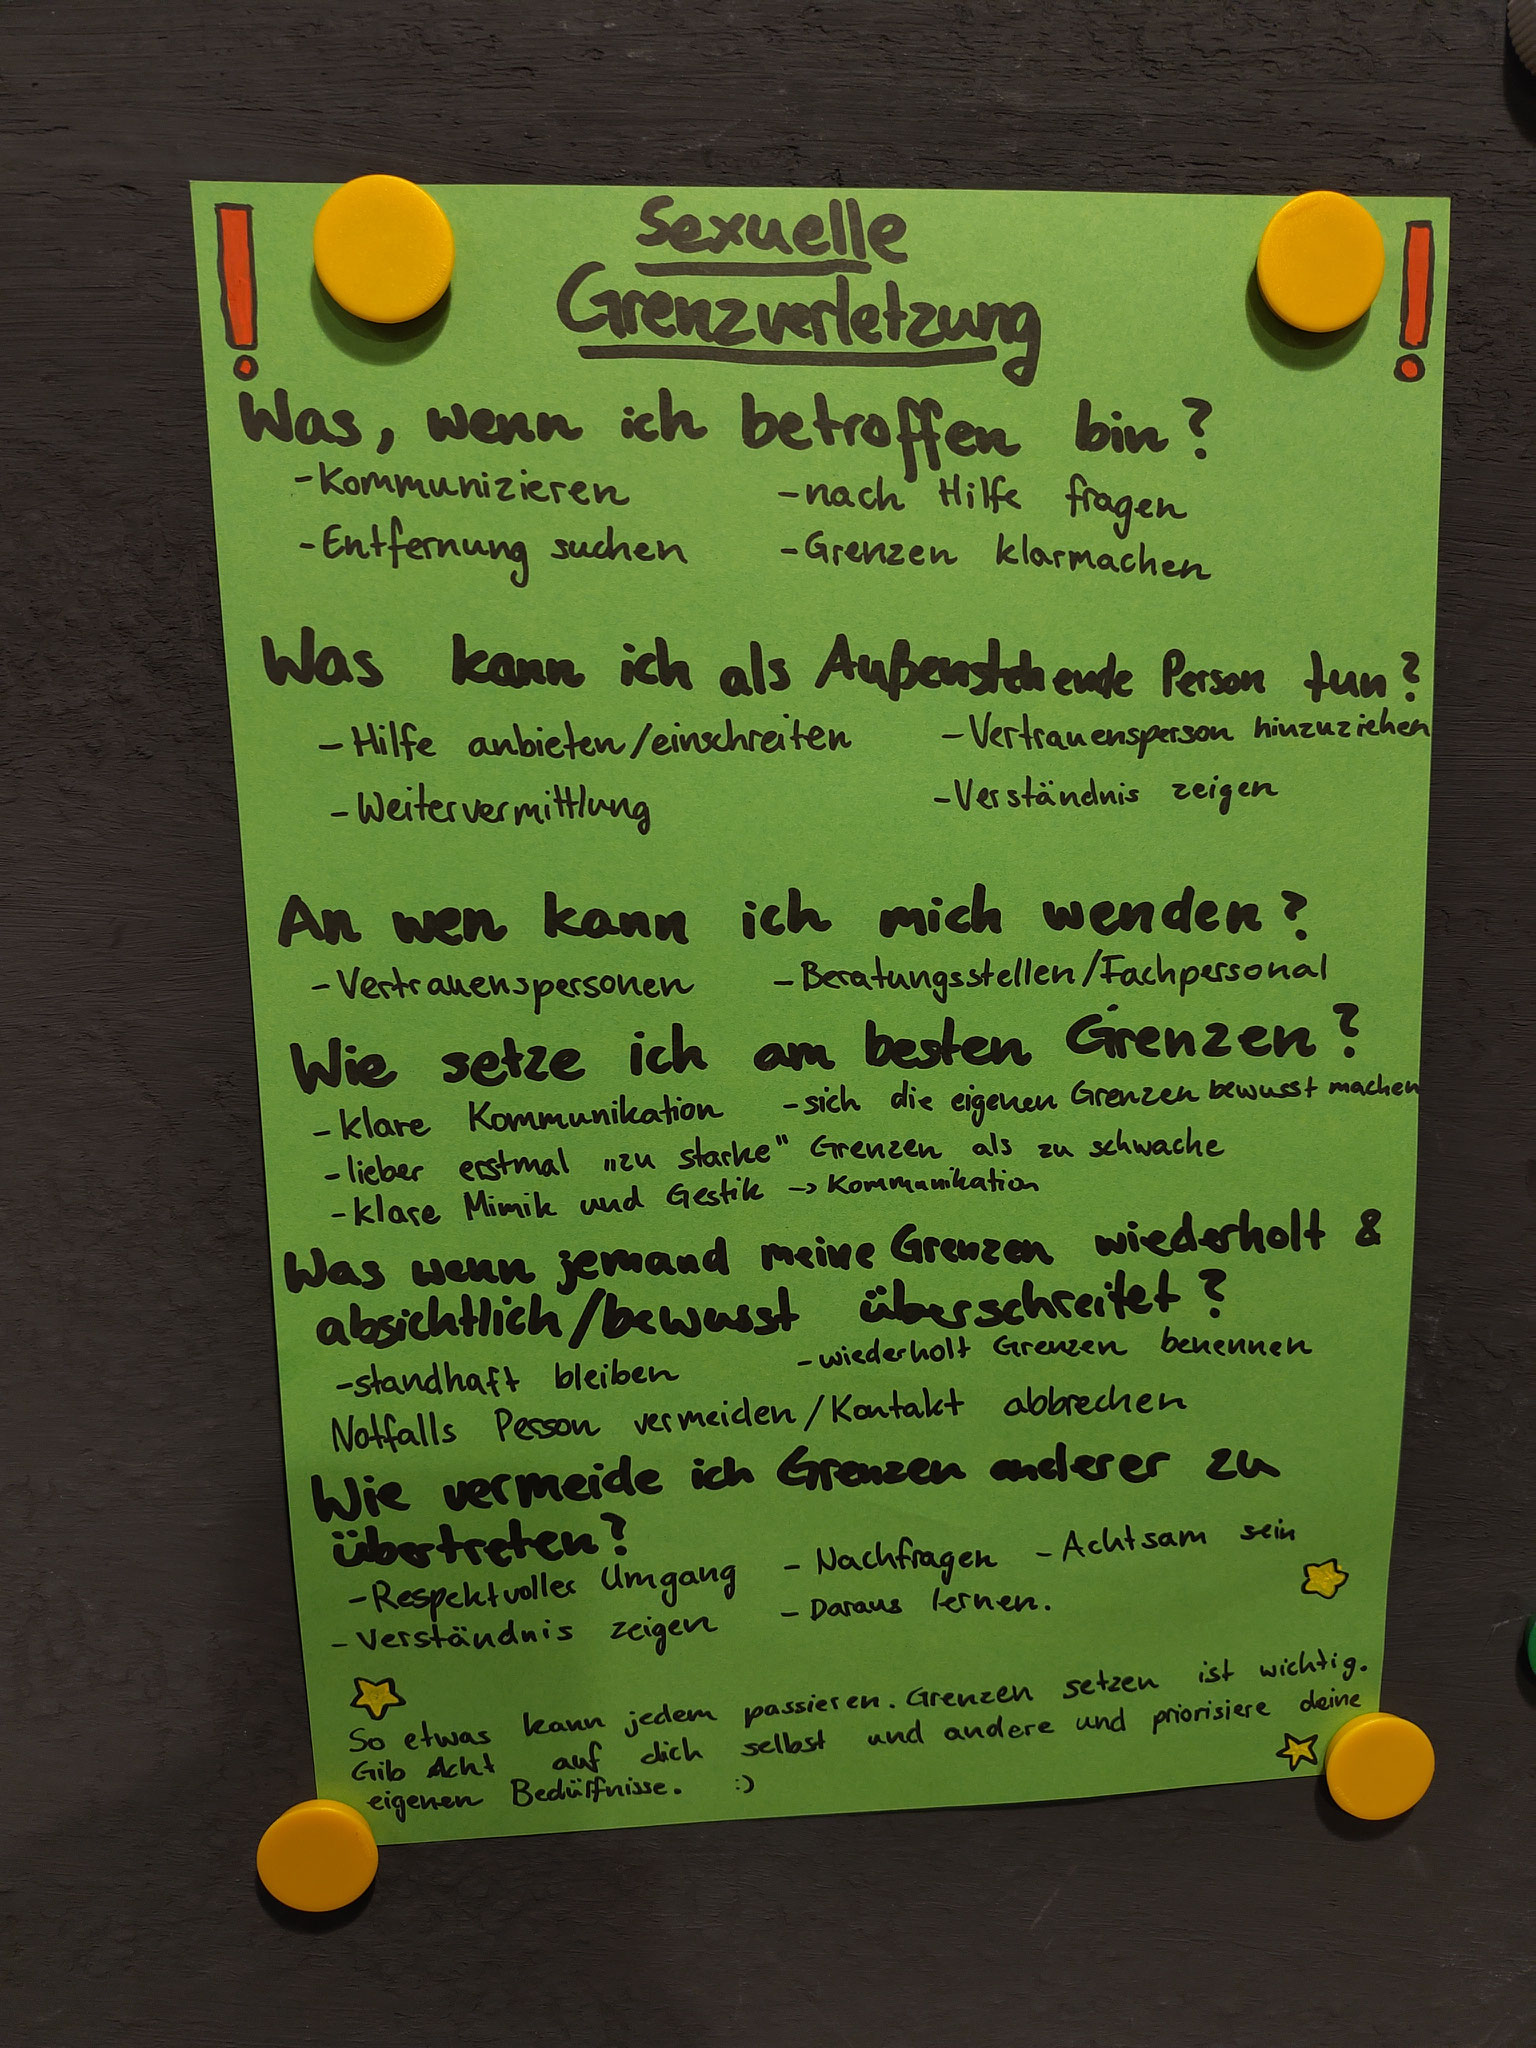 Sexuelle
Grenzverletzung
Was, wenn ich betroffen bin?
-Kommunizieren -nach Hilfe fragen
-Entfernung suchen -Grenzen klarmachen
Was kann ich als Außenstehende Person tun?
-Hilfe anbieten/einschreiten -Vertrauensperson hinzuziehen
-Weitervermittlung -Verständnis zeigen
An wen kann ich mich wenden?
-Vertrauenspersonen -Beratungsstellen/Fachpersonal
Wie setze ich am besten Grenzen?
-klare Kommunikation -sich die eigenen Grenzen bewusst machen
-lieber erstmal „zu starke" Grenzen als zu schwache
-klare Mimik und Gestik -> Kommunikation
Was wenn jemand meine Grenzen wiederholt &
absichtlich/bewusst überschreitet?
-standhaft bleiben -wiederholt Grenzen benennen
Notfalls Person vermeiden/Kontakt abbrechen
Wie vermeide ich Grenzen anderer zu
übertreten?
-Respektvoller Umgang - Nachfragen - Achtsam sein
-Verständnis zeigen - Daraus lernen.
So etwas kann jedem passieren. Grenzen setzen ist wichtig.
Gib Acht auf dich selbst und andere und priorisiere deine
eigenen Bedürfnisse. :)